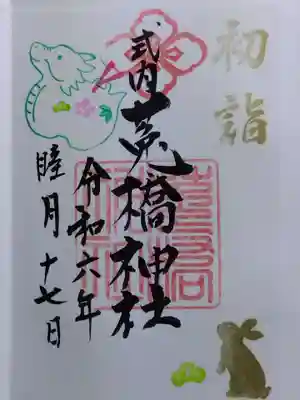 初詣
式内 莵橋神社
令和六年
睦月十七日